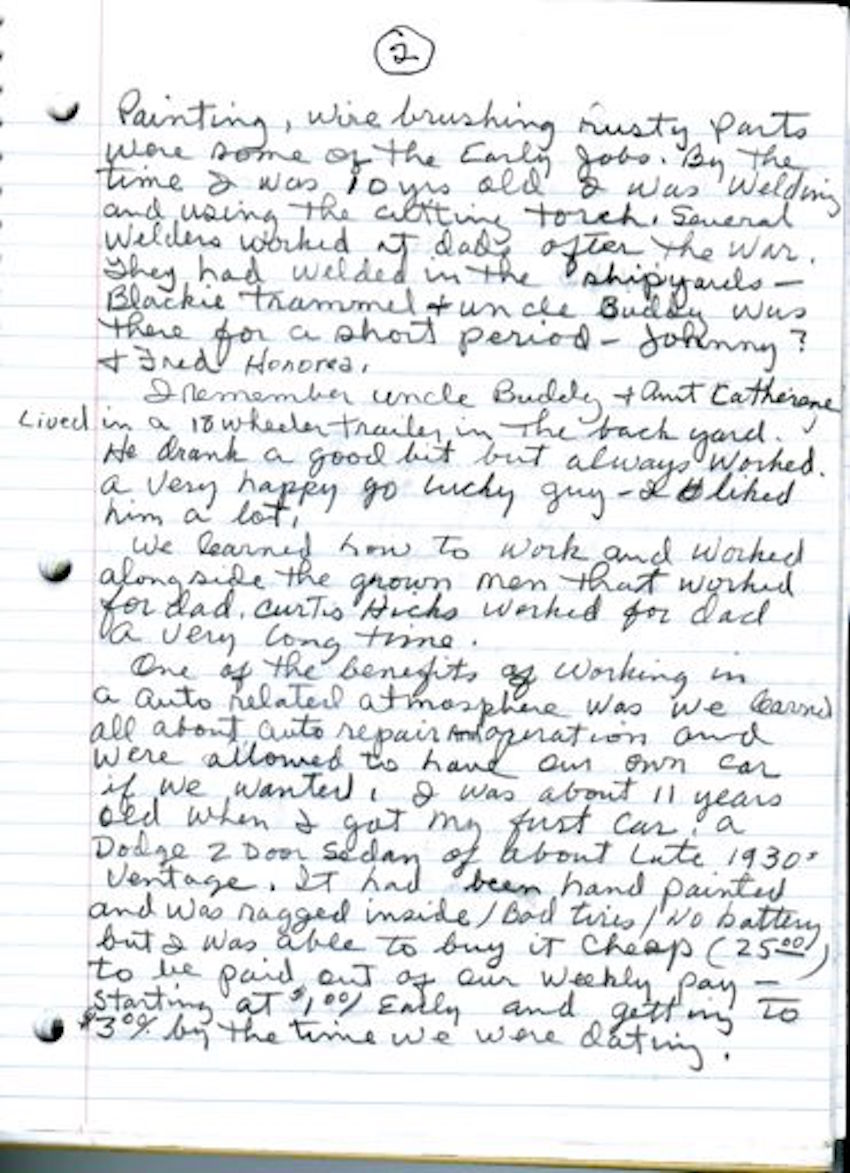 2
Painting, wire brushing rusty parts
were some of the Early Jobs. By the
time I was 10 yrs old I was Welding
and using the cutting torch. Several
Welders worked at dads after the war.
They had welded in the shipyards –
Blackie Trammel + uncle Buddy was
there for a short period – Johnny ?
+ Fred Honorea.
I remember uncle Buddy + Aunt Catherene
Lived in a 18 wheeler trailer in the back yard.
He drank a good bit but always worked.
a very happy go lucky guy – I liked
him a lot.
We learned how to work and worked
alongside the grown men that worked
for dad. Curtis Hicks worked for dad
a very long time.
One of the benefits of working in
a auto related atmosphere was we learned
all about auto repair and operation and
were allowed to have our own car
if we wanted. I was about 11 years
old when I got my first car. a
Dodge 2 Door Sedan of about Late 1930s
Ventage. It had been hand painted
and was ragged inside / Bad tires / No battery
but I was able to buy it Cheap (25 00)
to be paid out of our weekly pay –
starting at $1.00/ Early and getting to
$3 00/ by the time we were dating.